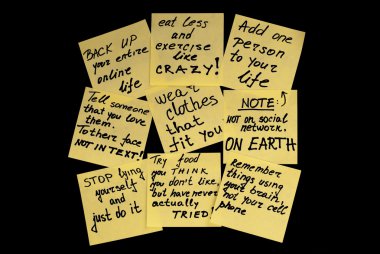 BACK UP
your entire
online
life
eat less
and
exercise
like
CRAZY!
Add one
person
to your
life
Tell someone
that you love
them.
To their face
NOT IN TEXT!
wear
clothes
that
fit you
NOTE:
NOT on social
network.
ON EARTH
STOP lying
yourself
and
just do it
Try food
you THINK
you don't like
but have never
actually
TRIED!
Remember
things using
your brain,
not your cell
phone